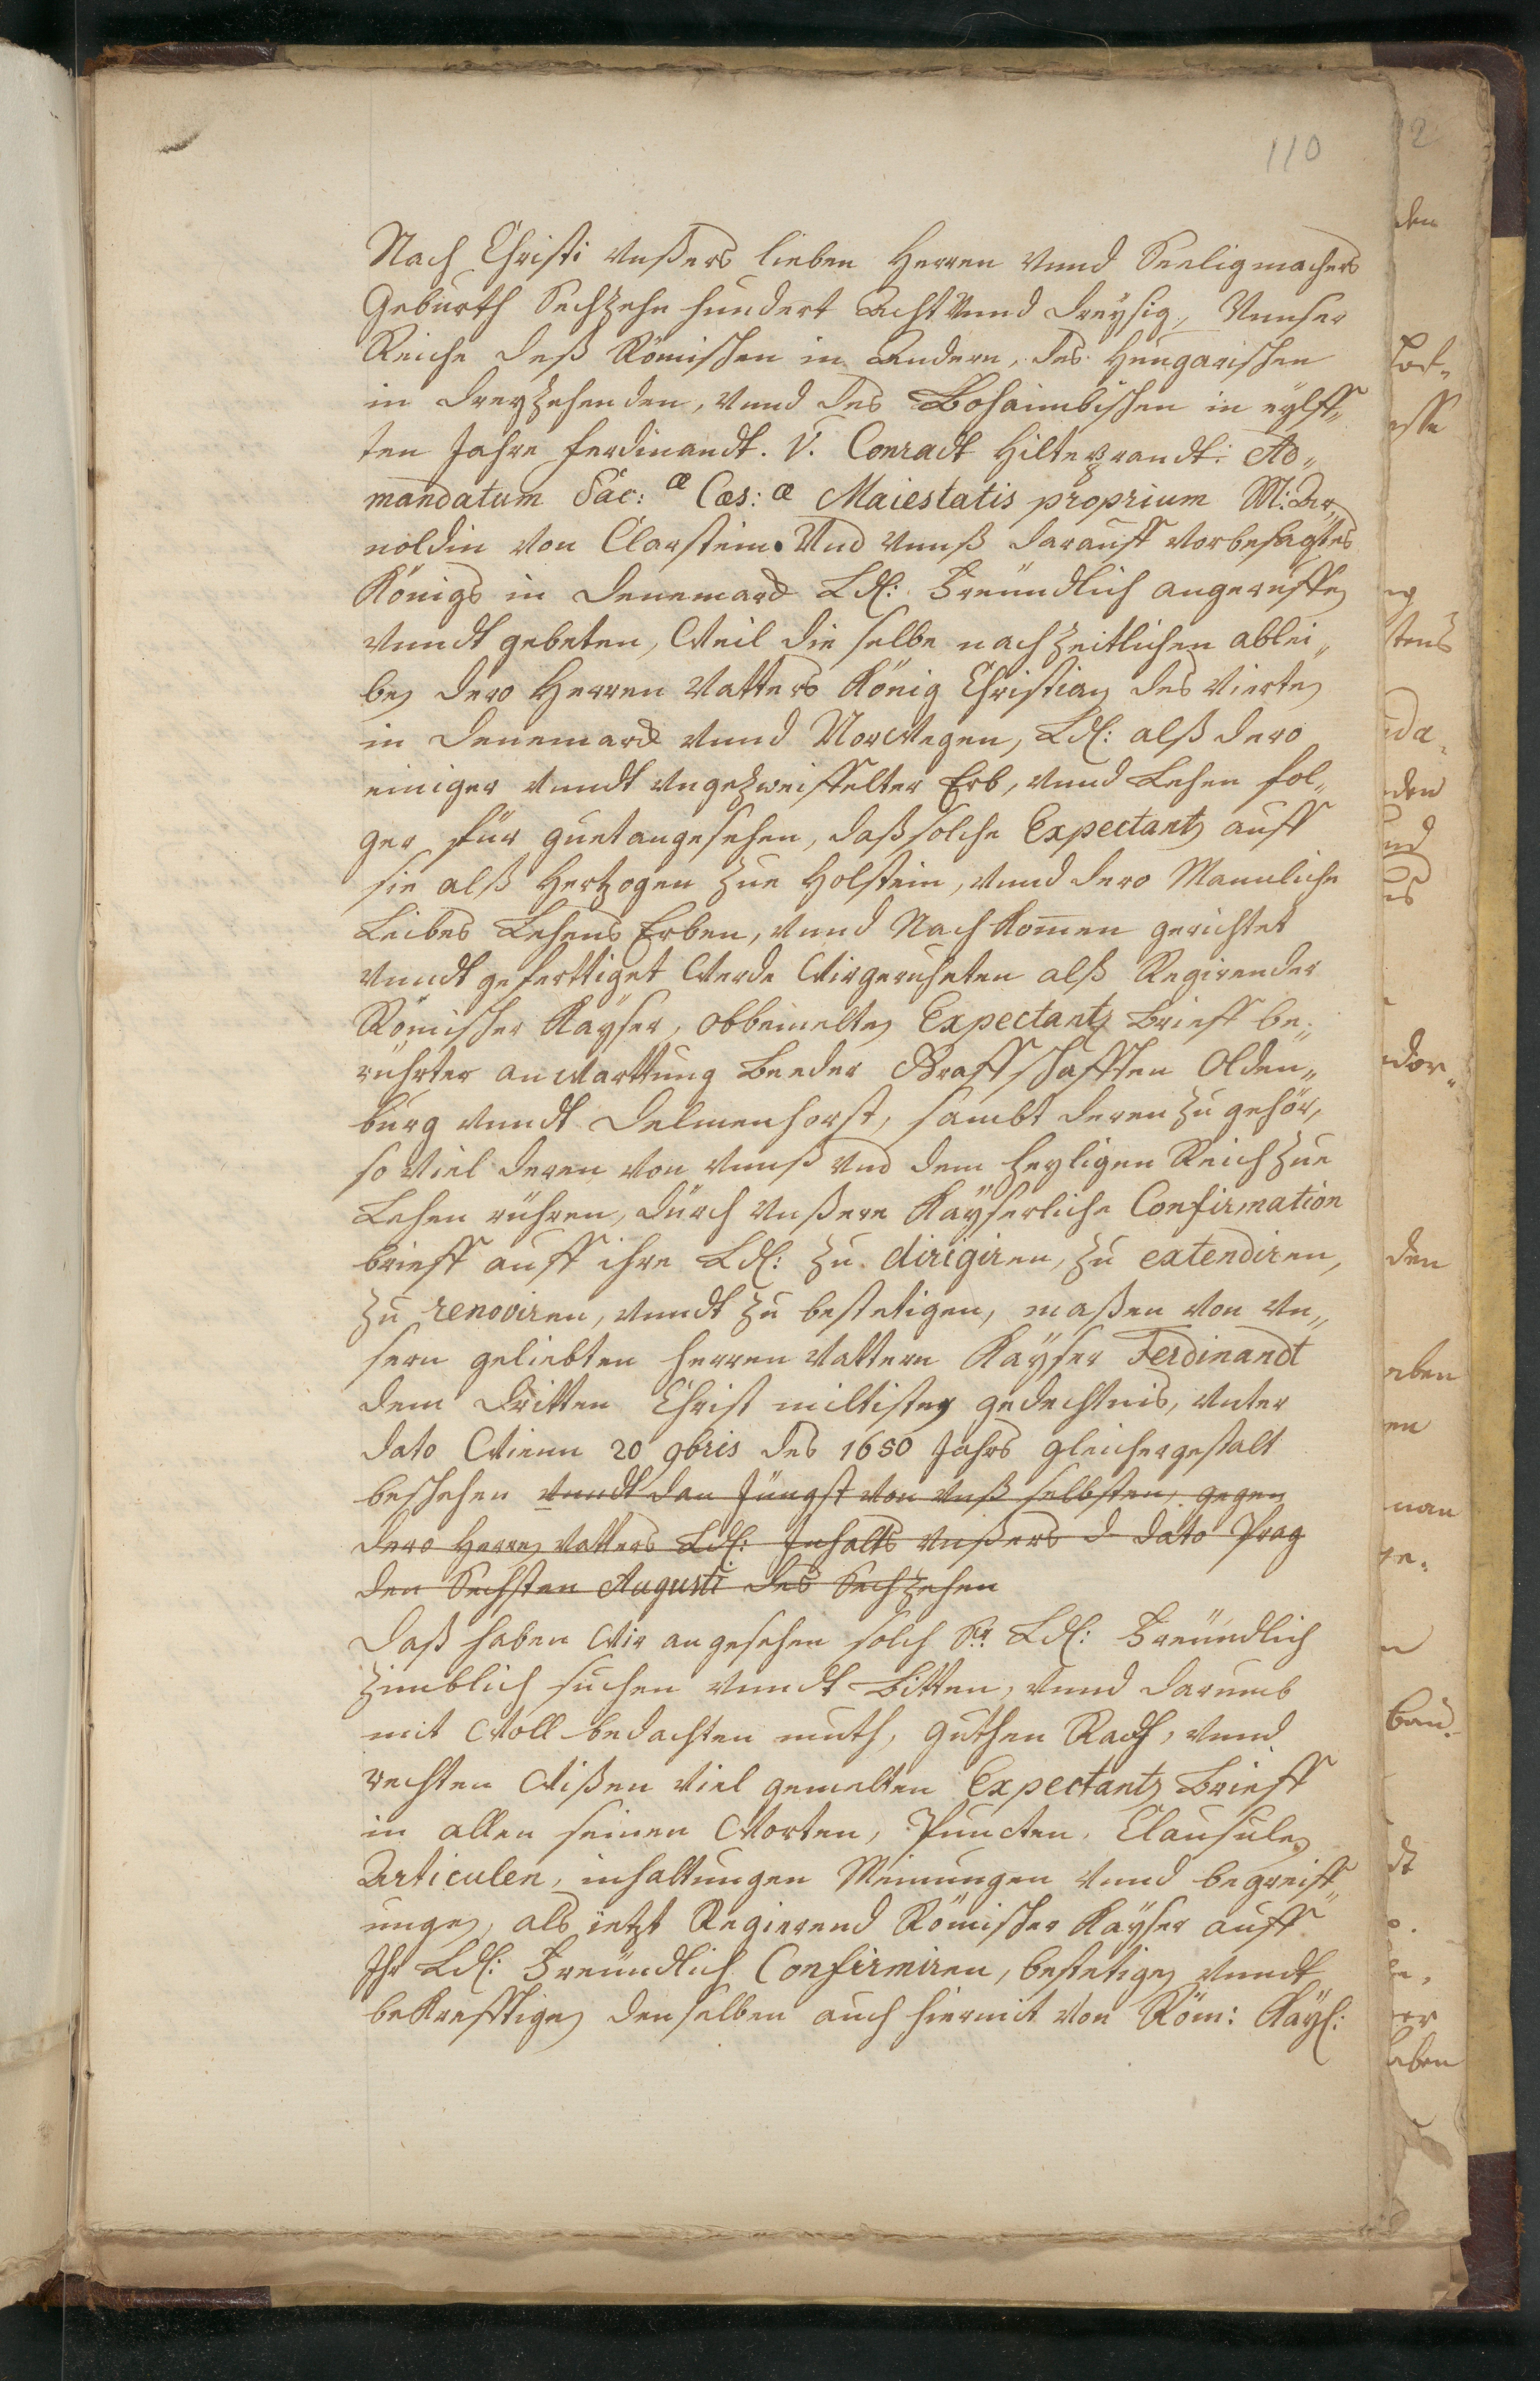 110
Nach Christi unßers lieben Herren unnd Seeligmachers
Geburth Sechzehn hundert Acht unnd dreysig, Unnser
Reiche deß Römischen in Andern, des Hungarischen
in dreyzehenden, unnd des Bohaimbischen in eylff„
ten Jahre Ferdinandt. V. Conradt Hiltebrandt. Ad„
mandatum Sac: æ Cæs: æ Maiestatis proprium M: Ar„
noldin von Clarstein. Und unnß darauff vorbesagtes
Königs in Denemarck Ld: Freündlich angeruffen
unndt gebeten, Weil die selbe nach zeitlichen ablei„
ben dero Herren Vatters König Christian des Vierten
in Denemarck unnd Norwegen, Ld: alß dero
einiger unndt ungezweiffelter Erb, unnd Lehen fol„
ger für guet angesehen, daß solche Expectantz auff
sie alß Hertzogen zue Holstein, unnd dero Mannliche
Leibes Lehens Erben, unnd Nachkomen gerichtet
unndt geferttiget Werde Wir geruheten alß Regirender
Römischer Kayser, obbemelten Expectantz Brieff be„
rührter anwarttung Beeder Graffschafften Olden„
burg unndt Delmenhorst, sambt deren zu gehör,
so viel deren von unnß und dem heyligen Reich zue
Lehen rühren, durch unßere Kayserliche Confirmation
brieff auff ihre Ld: zu dirigiren, zu extendiren,
zu renoviren, unndt zu bestetigen, maßen von un„
sern geliebten Herren Vattern Kayser Ferdinandt
dem Dritten Christ miltisten gedechtnis, unter
dato Wienn 20 9bris des 1650 Jahrs gleichergestalt
beschehen unndt dan Jüngst von unß selbsten, gegen
dero Herren Vatters Ld: Inhalts unßers d dato Prag
den Sechsten Augusti des Sechzehen
Daß haben Wir angesehen solch Sr Ld: Freündlich
zimblich suchen unndt Bitten, unnd darumb
mit Woll bedachten muth, guthen Rath, unnd
rechten Wißen viel gemelten Expectantz Brieff
in allen seinen Worten, Puncten, Clausulen
Articulen, inhaltungen Meinungen unnd begreiff„
ungen, als ietzt Regierend Römischer Kayser auff
Ihr Ld: Freündlich Confirmiren, bestetigen unndt
bekrefftigen denselben auch hiermit von Röm: Kayl: